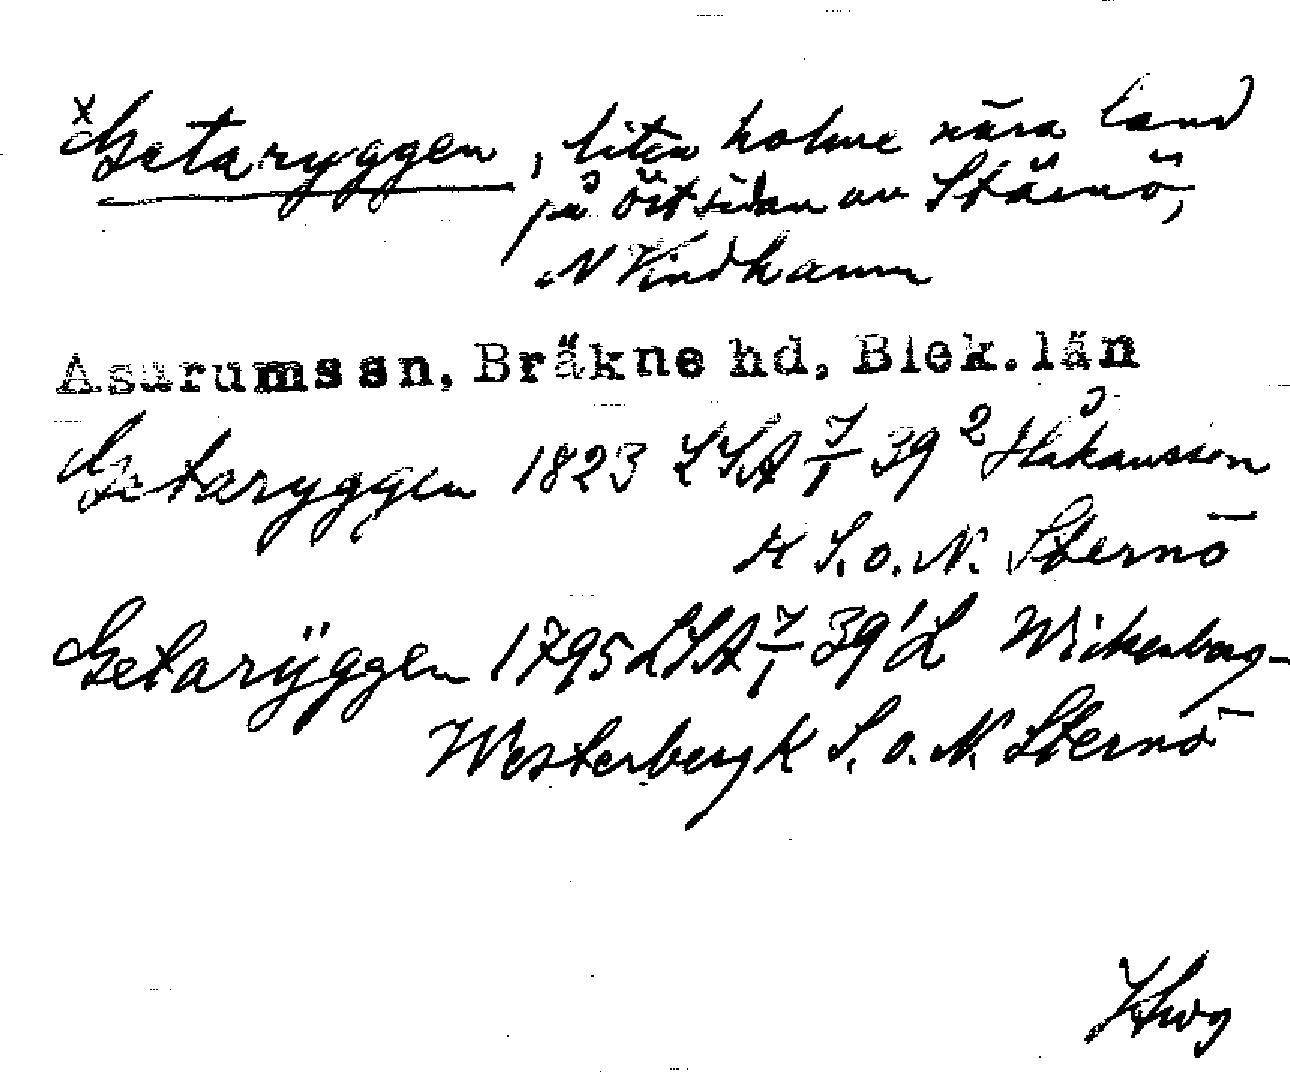 x Getaryggen, liten holme nära land
på östsidan av Stärnö,
N Vindhamn
Asarums sn, Bräkne hd, Blek. län
Getaryggen 1823 LSA 7/1 39² Håkansson
K S. o. N. Sternö
Getarÿggen 1795 LSA 7/1 39¹ L Wickenberg-
Westerberg K S. o. N. Sternö